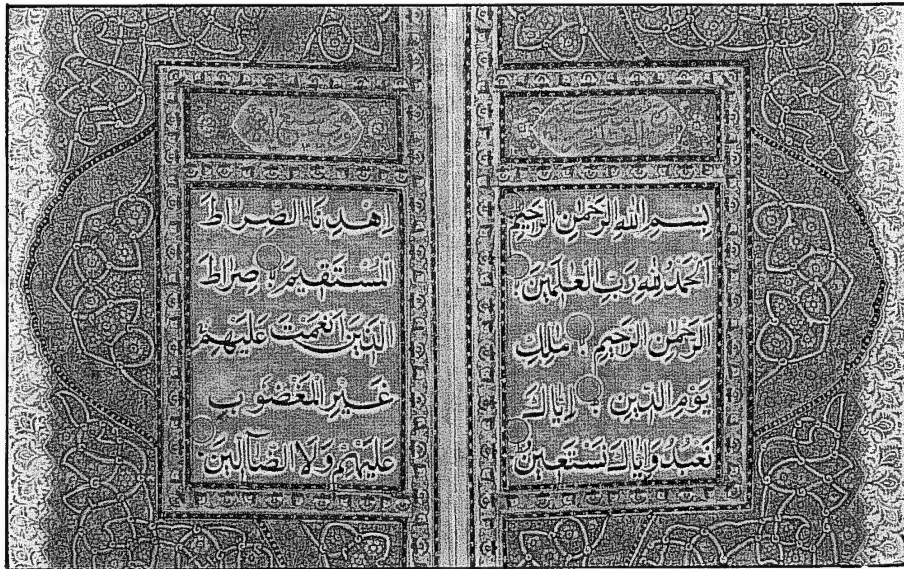 بِسْمِ اللهِ الرَّحْمٰنِ الرَّحِيْمِ
اَلْحَمْدُ لِلّٰهِ رَبِّ الْعٰلَمِيْنَ
الرَّحْمٰنِ الرَّحِيْمِ مٰلِكِ
يَوْمِ الدِّيْنِ اِيَّاكَ
نَعْبُدُ وَاِيَّاكَ نَسْتَعِيْنُ
اِهْدِنَا الصِّرَاطَ
الْمُسْتَقِيْمَ صِرَاطَ
الَّذِيْنَ اَنْعَمْتَ عَلَيْهِمْ
غَيْرِ الْمَغْضُوْبِ
عَلَيْهِمْ وَلَا الضَّآلِّيْنَ